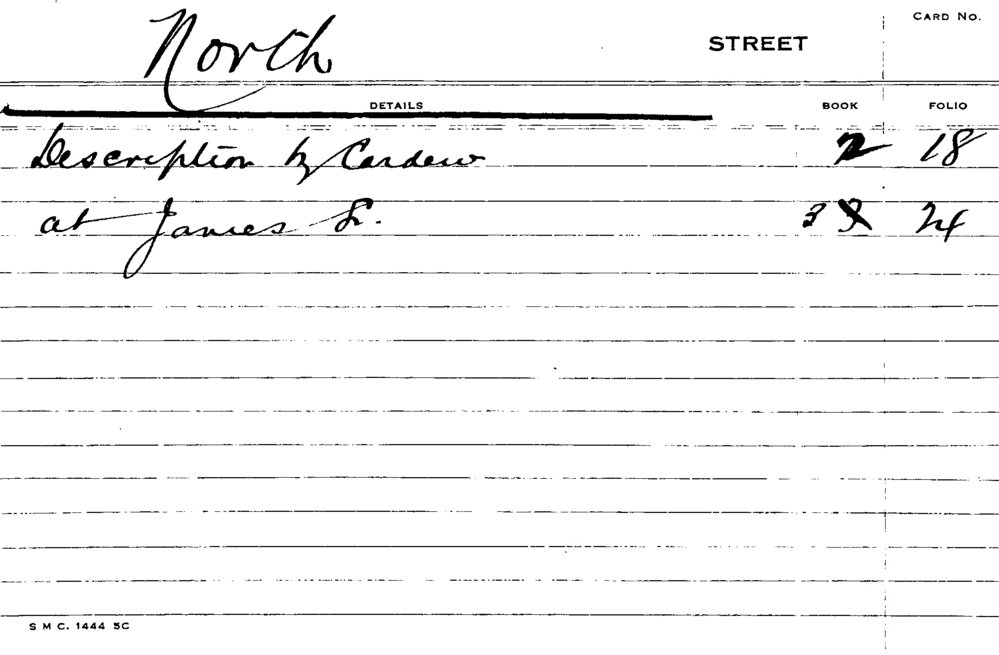 CARD No.
North STREET
DETAILS BOOK FOLIO
Description by Cardew 2 18
at James St. 3 24
S M C. 1444 5C